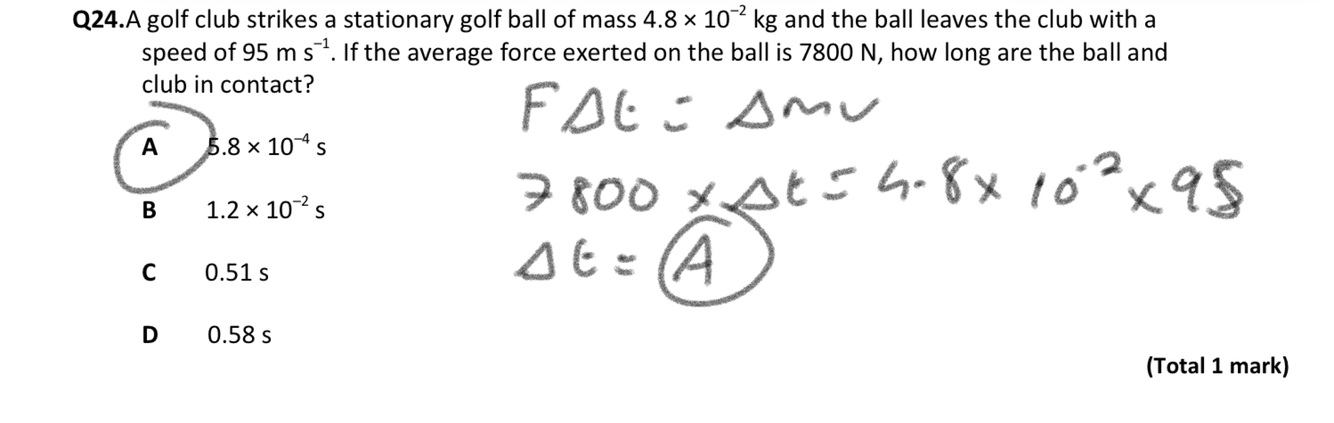 Q24.A golf club strikes a stationary golf ball of mass 4.8 × 10⁻² kg and the ball leaves the club with a
speed of 95 m s⁻¹. If the average force exerted on the ball is 7800 N, how long are the ball and
club in contact?
FΔt = Δmv
A 5.8 × 10⁻⁴ s
7800 × Δt = 4.8 × 10⁻² × 95
B 1.2 × 10⁻² s
Δt = A
C 0.51 s
D 0.58 s
(Total 1 mark)